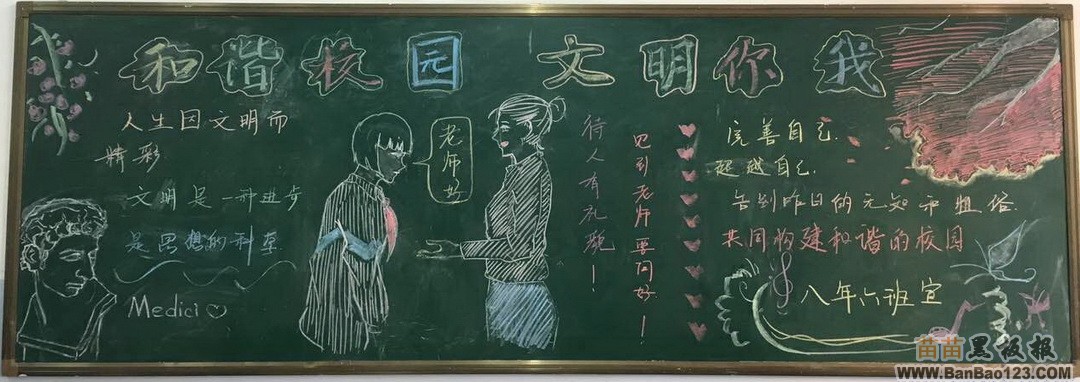 和谐校园 文明你我
人生因文明而
精彩
文明是一种进步
是思想的科草
Medici♡
老师好
待人有礼貌！
见到老师要问好！
完善自己.
超越自己.
告别昨日的无知和粗俗.
共同构建和谐的校园
八年六班宣
苗苗黑板报
www.BanBao123.com